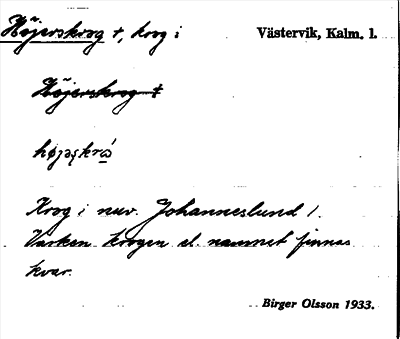 Höjerskrog †, krog i Västervik, Kalm. l.
Höjerskrog †
Krog i nuv. Johanneslund /.
Varken krogen el. namnet finnas
kvar.
Birger Olsson 1933.